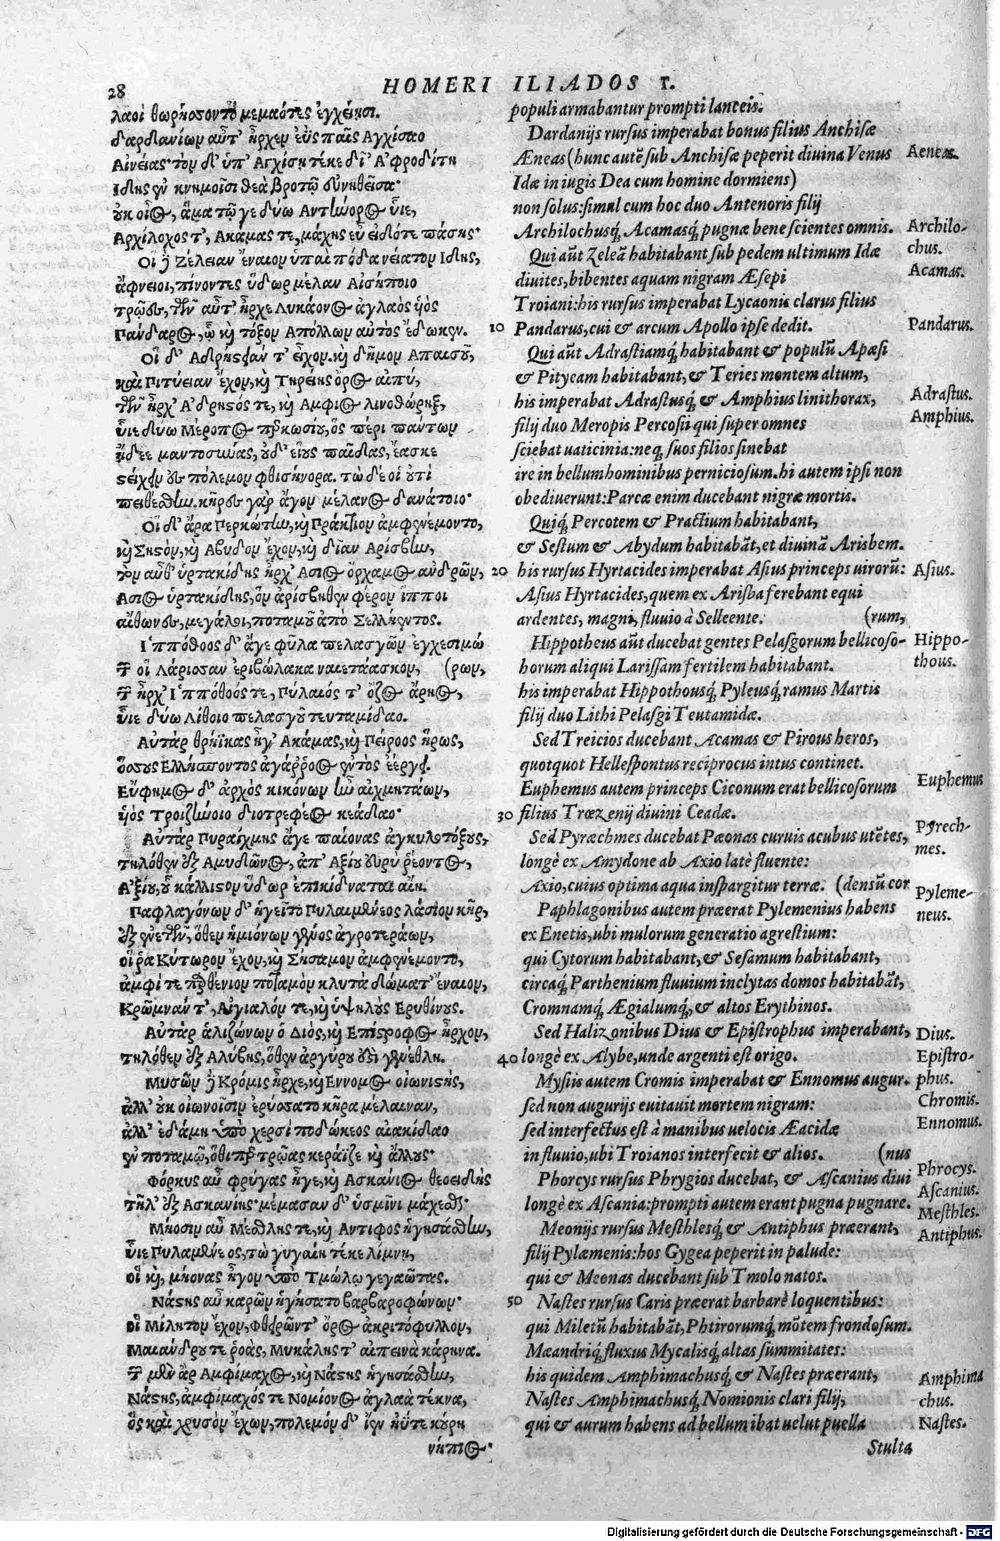 28
HOMERI ILIADOS T.
λαοὶ θωρήσοντο μεμαότες ἐγχείησι.
Δαρδανίων αὖτ' ἦρχεν ἐῢς παῖς Ἀγχίσαο
Αἰνείας· τὸν δ' ὑπ' Ἀγχίσῃ τέκε δῖ' Ἀφροδίτη
Ἴδης ἐν κνημοῖσι θεὰ βροτῷ εὐνηθεῖσα·
οὐκ οἶος, ἅμα τῷγε δύω Ἀντήνορος υἷε,
Ἀρχίλοχος τ', Ἀκάμας τε, μάχης εὖ εἰδότε πάσης·
Οἳ δὲ Ζέλειαν ἔναιον ὑπαὶ πόδα νείατον Ἴδης,
ἀφνειοὶ, πίνοντες ὕδωρ μέλαν Αἰσήποιο
τρῶες, τῶν αὖτ' ἦρχε Λυκάονος ἀγλαὸς υἱὸς
Πάνδαρος, ᾧ καὶ τόξον Ἀπόλλων αὐτὸς ἔδωκεν.
Οἳ δ' Ἀδρήστειάν τ' εἶχον, καὶ δῆμον Ἀπαισοῦ,
καὶ Πιτύειαν ἔχον, καὶ Τηρείης ὄρος αἰπύ,
τῶν ἦρχ' Ἄδρηστός τε, καὶ Ἄμφιος λινοθώρηξ,
υἷε δύω Μέροπος περκωσίου, ὃς πέρι πάντων
ᾔδεε μαντοσύνας, οὐδ' ἑοῦς παῖδας, ἔασκε
στείχειν ἐς πόλεμον φθισήνορα. τὼ δέ οἱ οὔτι
πειθέσθην, κῆρες γὰρ ἄγον μέλανος θανάτοιο·
Οἳ δ' ἄρα Περκώτην, καὶ Πράκτιον ἀμφενέμοντο,
καὶ Σηστὸν, καὶ Ἄβυδον ἔχον, καὶ δῖαν Ἀρίσβην,
τῶν αὖθ' ὑρτακίδης ἦρχ' Ἄσιος ὄρχαμος ἀνδρῶν,
Ἄσιος ὑρτακίδης, ὃν ἀρίσβηθεν φέρον ἵπποι
αἴθωνες, μεγάλοι, ποταμοῦ ἀπὸ Σελλήεντος.
Ἱππόθοος δ' ἄγε φῦλα πελασγῶν ἐγχεσιμώ
τῶν οἳ Λάρισσαν ἐριβώλακα ναιετάασκον, (ρων,
τῶν ἦρχ' Ἱππόθοός τε, Πύλαιός τ' ὄζος ἄρηος,
υἷε δύω Λήθοιο πελασγοῦ τευταμίδαο.
Αὐτὰρ θρήϊκας ἦγ' Ἀκάμας, καὶ Πείροος ἥρως,
ὅσσους Ἑλλήσποντος ἀγάῤῥοος ἐντὸς ἐέργει.
Εὔφημος δ' ἀρχὸς κικόνων ἦν αἰχμητάων,
υἱὸς Τροιζήνοιο διοτρεφέος κεάδαο·
Αὐτὰρ Πυραίχμης ἄγε παίονας ἀγκυλοτόξους,
τηλόθεν ἐξ Ἀμυδῶνος, ἀπ' Ἀξίου εὐρὺ ῥέοντος,
Ἀξίου, οὗ κάλλιστον ὕδωρ ἐπικίδναται αἴῃ.
Παφλαγόνων δ' ἡγεῖτο Πυλαιμένεος λάσιον κῆρ,
ἐξ ἐνετῶν, ὅθεν ἡμιόνων γένος ἀγροτεράων,
οἵ ῥα Κύτωρον ἔχον, καὶ Σήσαμον ἀμφενέμοντο,
ἀμφί τε παρθένιον ποταμὸν κλυτὰ δώματ' ἔναιον,
Κρῶμναν τ', Αἰγιαλόν τε, καὶ ὑψηλοὺς Ἐρυθίνους.
Αὐτὰρ ἁλιζώνων ὁ Δίος, καὶ Ἐπίστροφος ἦρχον,
τηλόθεν ἐξ Ἀλύβης, ὅθεν ἀργύρου ἐστὶ γενέθλη.
Μυσῶν δὲ Χρόμις ἦρχε, καὶ Ἔννομος οἰωνιστής,
ἀλλ' οὐκ οἰωνοῖσιν ἐρύσσατο κῆρα μέλαιναν,
ἀλλ' ἐδάμη ὑπὸ χερσὶ ποδώκεος αἰακίδαο
ἐν ποταμῷ, ὅθιπερ τρῶας κεράϊζε καὶ ἄλλους·
Φόρκυς αὖ φρύγας ἦγε, καὶ Ἀσκάνιος θεοειδὴς
τῆλ' ἐξ Ἀσκανίης· μέμασαν δ' ὑσμῖνι μάχεσθαι·
Μῄοσιν αὖ Μέσθλης τε, καὶ Ἄντιφος ἡγησάσθην,
υἷε Πυλαιμένεος, τὼ γυγαίη τέκε λίμνη,
οἳ καὶ μῄονας ἦγον ὑπὸ Τμώλῳ γεγαῶτας.
Νάστης αὖ καρῶν ἡγήσατο βαρβαροφώνων·
οἳ Μίλητον ἔχον, Φθειρῶντ' ὄρος ἀκριτόφυλλον,
Μαιάνδρου τε ῥοὰς, Μυκάλης τ' αἰπεινὰ κάρηνα.
τῶν μὲν ἄρ Ἀμφίμαχος, καὶ Νάστης ἡγησάσθην,
Νάστης, ἀμφίμαχός τε Νομίονος ἀγλαὰ τέκνα,
ὃς καὶ χρυσὸν ἔχων, πολεμόν δ' ἴεν ἠΰτε κούρη
νήπιος·
populi armabantur prompti lanceis.
Dardanijs rursus imperabat bonus filius Anchisæ
Æneas (hunc autē sub Anchisæ peperit divina Venus
Idæ in iugis Dea cum homine dormiens)
non solus: simul cum hoc duo Antenoris filij
Archilochusq́, Acamasq́, pugnæ bene scientes omnis.
Qui aūt Zeleā habitabant sub pedem ultimum Idæ
divites, bibentes aquam nigram Æsepi
Troiani: his rursus imperabat Lycaonis clarus filius
10 Pandarus, cui & arcum Apollo ipse dedit.
Qui aūt Adrastiamq́, habitabant & populū Apæsi
& Pityeam habitabant, & Teries montem altum,
his imperabat Adrastusq́, & Amphius linithorax,
filij duo Meropis Percosii qui super omnes
sciebat uaticinia: neq́, suos filios sinebat
ire in bellum hominibus perniciosum. hi autem ipsi non
obediuerunt: Parcæ enim ducebant nigræ mortis.
Quiq́, Percotem & Practium habitabant,
& Sestum & Abydum habitabāt, et diuinā Arisbem.
20 his rursus Hyrtacides imperabat Asius princeps uirorū:
Asius Hyrtacides, quem ex Arisba ferebant equi
ardentes, magni, fluuio à Selleente. (rum,
Hippotheus aūt ducebat gentes Pelasgorum bellicoso-
horum aliqui Larissam fertilem habitabant.
his imperabat Hippothousq́, Pyleusq́, ramus Martis
filij duo Lithi Pelasgi Teutamidæ.
Sed Treicios ducebant Acamas & Pirous heros,
quotquot Hellespontus reciprocus intus continet.
Euphemus autem princeps Ciconum erat bellicosorum
30 filius Træzenij diuini Ceadæ.
Sed Pyræchmes ducebat Pæonas curuis acubus utētes,
longè ex Amydone ab Axio latè fluente:
Axio, cuius optima aqua inspargitur terræ. (densū cor
Paphlagonibus autem præerat Pylemenius habens
ex Enetis, ubi mulorum generatio agrestium:
qui Cytorum habitabant, & Sesamum habitabant,
circaq́, Parthenium fluuium inclytas domos habitabāt,
Cromnamq́, Ægialumq́, & altos Erythinos.
Sed Halizonibus Dius & Epistrophus imperabant,
40 longè ex Alybe, unde argenti est origo.
Mysiis autem Cromis imperabat & Ennomus augur.
sed non augurijs euitauit mortem nigram:
sed interfectus est à manibus uelocis Æacidæ
in fluuio, ubi Troianos interfecit & alios. (nus
Phorcys rursus Phrygios ducebat, & Ascanius diui
longè ex Ascania: prompti autem erant pugna pugnare.
Meonijs rursus Mesthlesq́, & Antiphus præerant,
filij Pylæmenis: hos Gygea peperit in palude:
qui & Meonas ducebant sub Tmolo natos.
50 Nastes rursus Caris præerat barbarè loquentibus:
qui Miletū habitabāt, Phtirorumq́, mōtem frondosum.
Mæandriq́, fluxus Mycalisq́, altas summitates:
his quidem Amphimachusq́, & Nastes præerant,
Nastes Amphimachusq́, Nomionis clari filij,
qui & aurum habens ad bellum ibat uelut puella
Stulta
Aeneas.
Archilo-
chus.
Acamas.
Pandarus.
Adrastus.
Amphius.
Asius.
Hippo-
thous.
Euphemus
Pyrech-
mes.
Pyleme-
neus.
Dius.
Epistro-
phus.
Chromis.
Ennomus.
Phrocys.
Ascanius.
Mesthles.
Antiphus.
Amphima
chus.
Nastes.
Digitalisierung gefördert durch die Deutsche Forschungsgemeinschaft - DFG